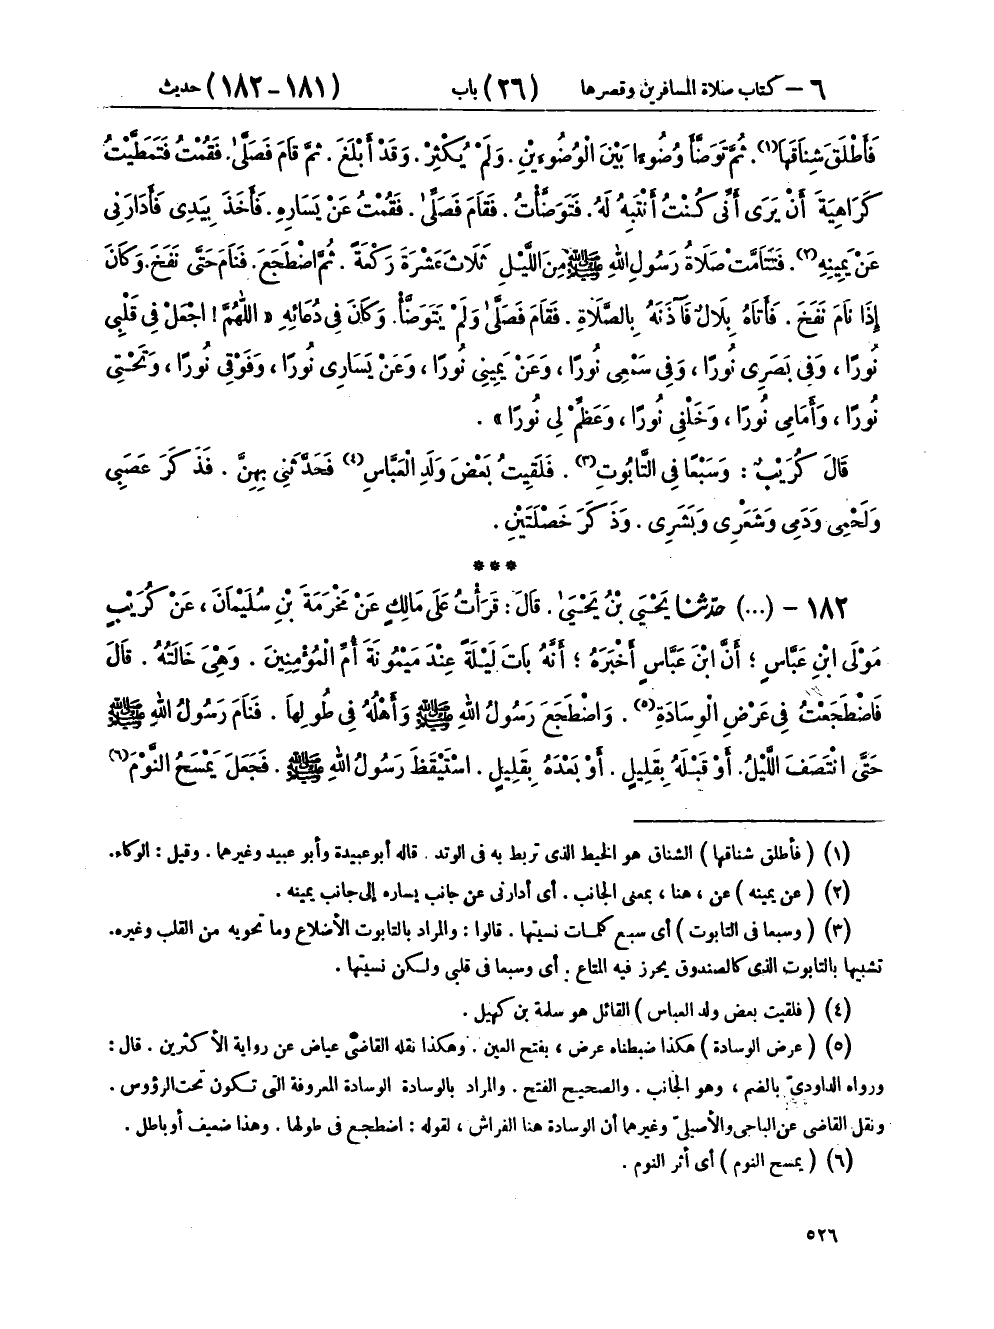 ٦ – كتاب صلاة المسافرين وقصرها (٢٦) باب (١٨١–١٨٢) حديث
فَأَطْلَقَ شِنَاقَهَا(١). ثُمَّ تَوَضَّأَ وُضُوءًا بَيْنَ الْوُضُوءَيْنِ. وَلَمْ يُكْثِرْ. وَقَدْ أَبْلَغَ. ثُمَّ قَامَ فَصَلَّىٰ. فَقُمْتُ فَتَمَطَّيْتُ
كَرَاهِيَةَ أَنْ يَرَى أَنِّى كُنْتُ أَنْتَبِهُ لَهُ. فَتَوَضَّأْتُ. فَقَامَ فَصَلَّىٰ. فَقُمْتُ عَنْ يَسَارِهِ. فَأَخَذَ بِيَدِى فَأَدَارَنِى
عَنْ يَمِينِهِ(٢). فَتَتَامَّتْ صَلَاةُ رَسُولِ اللهِ ﷺ مِنَ اللَّيْلِ ثَلَاثَ عَشْرَةَ رَكْعَةً. ثُمَّ اضْطَجَعَ. فَنَامَ حَتَّى نَفَخَ. وَكَانَ
إِذَا نَامَ نَفَخَ. فَأَتَاهُ بِلَالٌ فَآذَنَهُ بِالصَّلَاةِ. فَقَامَ فَصَلَّىٰ وَلَمْ يَتَوَضَّأْ. وَكَانَ فِى دُعَائِهِ « اللَّهُمَّ! اجْعَلْ فِى قَلْبِى
نُورًا، وَفِى بَصَرِى نُورًا، وَفِى سَمْعِى نُورًا، وَعَنْ يَمِينِى نُورًا، وَعَنْ يَسَارِى نُورًا، وَفَوْقِى نُورًا، وَتَحْتِى
نُورًا، وَأَمَامِى نُورًا، وَخَلْفِى نُورًا، وَعَظِّمْ لِى نُورًا ».
قَالَ كُرَيْبٌ: وَسَبْعًا فِى التَّابُوتِ(٣). فَلَقِيتُ بَعْضَ وَلَدِ الْعَبَّاسِ(٤) فَحَدَّثَنِى بِهِنَّ. فَذَكَرَ عَصَبِى
وَلَحْمِى وَدَمِى وَشَعْرِى وَبَشَرِى. وَذَكَرَ خَصْلَتَيْنِ.
***
١٨٢ – (...) حَدَّثَنَا يَحْيَى بْنُ يَحْيَىٰ. قَالَ: قَرَأْتُ عَلَى مَالِكٍ عَنْ مَخْرَمَةَ بْنِ سُلَيْمَانَ، عَنْ كُرَيْبٍ
مَوْلَى ابْنِ عَبَّاسٍ؛ أَنَّ ابْنَ عَبَّاسٍ أَخْبَرَهُ؛ أَنَّهُ بَاتَ لَيْلَةً عِنْدَ مَيْمُونَةَ أُمِّ الْمُؤْمِنِينَ. وَهِىَ خَالَتُهُ. قَالَ
فَاضْطَجَعْتُ فِى عَرْضِ الْوِسَادَةِ(٥). وَاضْطَجَعَ رَسُولُ اللهِ ﷺ وَأَهْلُهُ فِى طُولِهَا. فَنَامَ رَسُولُ اللهِ ﷺ
حَتَّى انْتَصَفَ اللَّيْلُ. أَوْ قَبْلَهُ بِقَلِيلٍ. أَوْ بَعْدَهُ بِقَلِيلٍ. اسْتَيْقَظَ رَسُولُ اللهِ ﷺ. فَجَعَلَ يَمْسَحُ النَّوْمَ(٦)
(١) (فأطلق شناقها) الشناق هو الخيط الذى تربط به فى الوتد. قاله أبو عبيدة وأبو عبيد وغيرهما. وقيل: الوكاء.
(٢) (عن يمينه) عن، هنا، بمعنى الجانب. أى أدارنى عن جانب يساره إلى جانب يمينه.
(٣) (وسبعا فى التابوت) أى سبع كلمات نسيتها. قالوا: والمراد بالتابوت الأضلاع وما تحويه من القلب وغيره.
تشبيها بالتابوت الذى كالصندوق يحرز فيه المتاع. أى وسبعا فى قلبى ولكن نسيتها.
(٤) (فلقيت بعض ولد العباس) القائل هو سلمة بن كهيل.
(٥) (عرض الوسادة) هكذا ضبطناه عرض، بفتح العين. وهكذا نقله القاضى عياض عن رواية الأكثرين. قال:
ورواه الداودىّ بالضم، وهو الجانب. والصحيح الفتح. والمراد بالوسادة الوسادة المعروفة التى تكون تحت الرؤوس.
ونقل القاضى عن الباجى والأصيلىّ وغيرهما أن الوسادة هنا الفراش، لقوله: اضطجع فى طولها. وهذا ضعيف أو باطل.
(٦) (يمسح النوم) أى أثر النوم.
٥٢٦